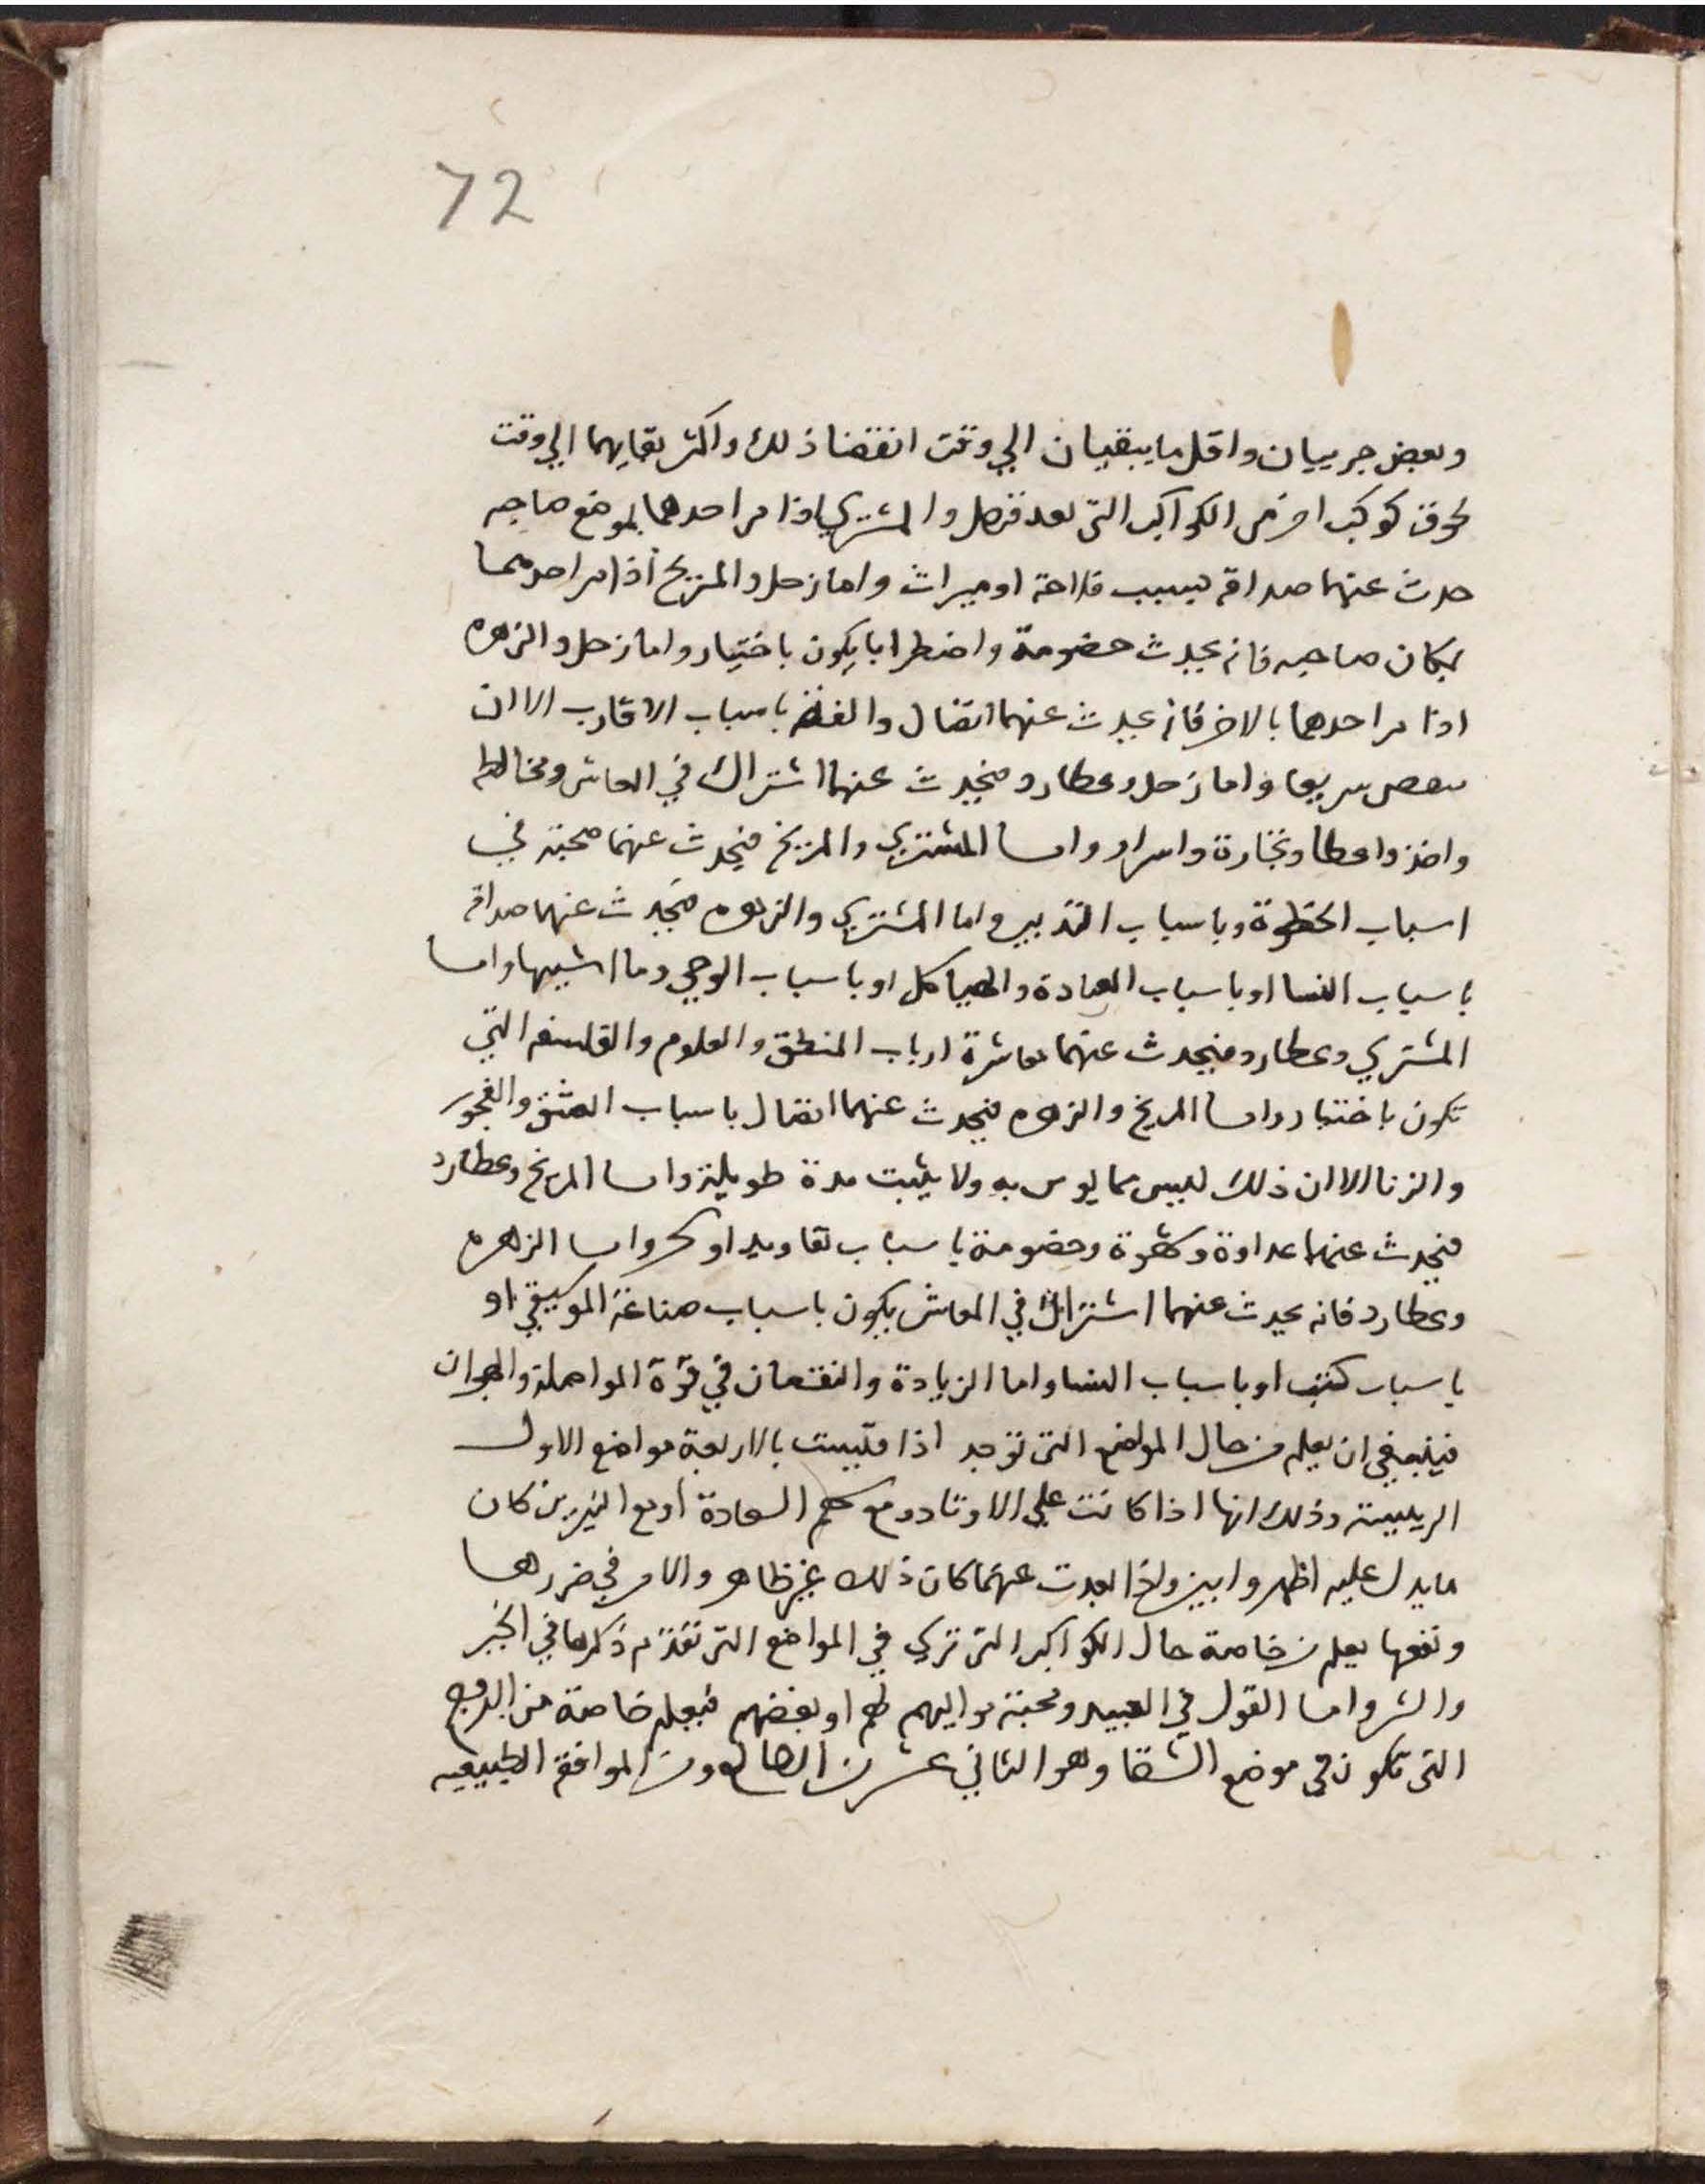 72
وبعض جرييان واقل ما يبقيان الي وقت انقضا ذلك واكثر بقايهما الي وقت
لحوق كوكب اخر من الكواكب التي بعد فزحل والمشتري اذا مر احدهما بموضع صاحبه
حدث عنهما صداقه بسبب فلاحة او ميراث واما زحل والمريخ اذا مر احدهما
بمكان صاحبه فانه يحدث خضومة واضطرابا يكون باختيار واما زحل والزهره
اذا مر احدهما بالاخر فانه يحدث عنهما اتصال والفة باسباب الاقارب الا ان
سريعا واما زحل وعطارد فيحدث عنهما اشتراك في المعاش ومخالطه
واخذ واعطا وتجارة واسرار واما المشتري والمريخ فيحدث عنهما محبة في
اسباب الحظوة وباسباب التدبير واما المشتري والزهره فيحدث عنهما صداقه
باسباب النسا او باسباب العبادة والهياكل او باسباب الوحي وما اشبهها واما
المشتري وعطارد فيحدث عنهما معاشرة ارباب المنطق والعلوم والفلسفه التي
تكون باختيار واما المريخ والزهره فيحدث عنهما اتصال باسباب العشق والفجور
والزنا الا ان ذلك ليس مما يوس به ولا يثبت مدة طويلة واما المريخ وعطارد
فيحدث عنهما عداوة وخضومة باسباب او واما الزهره
وعطارد فانه يحدث عنهما اشتراك في المعاش يكون باسباب صناعة الموسيقي او
باسباب كتب او باسباب النسا واما الزيادة والنقصان في قوة المواصلة والهجران
فينبغي ان يعلم من حال المواضع التي توجد اذا قيست بالاربعة مواضع الاول
الرييسة وذلك انها اذا كانت علي الاوتاد ومع سهم السعادة او مع النيرين كان
ما يدل عليه اظهر وابين واذا بعدت عنهما كان ذلك غير ظاهر والامر في ضررها
ونفعها يعلم من خاصة حال الكواكب التي تري في المواضع التي تقدم ذكرها في الخير
والشر واما القول في العبيد ومحبة مواليهم لهم او بغضهم فيعلم خاصة من البروج
التي تكون في موضع الشقا وهو الثاني عشر من الطالع ومن الموافقه الطبيعيه